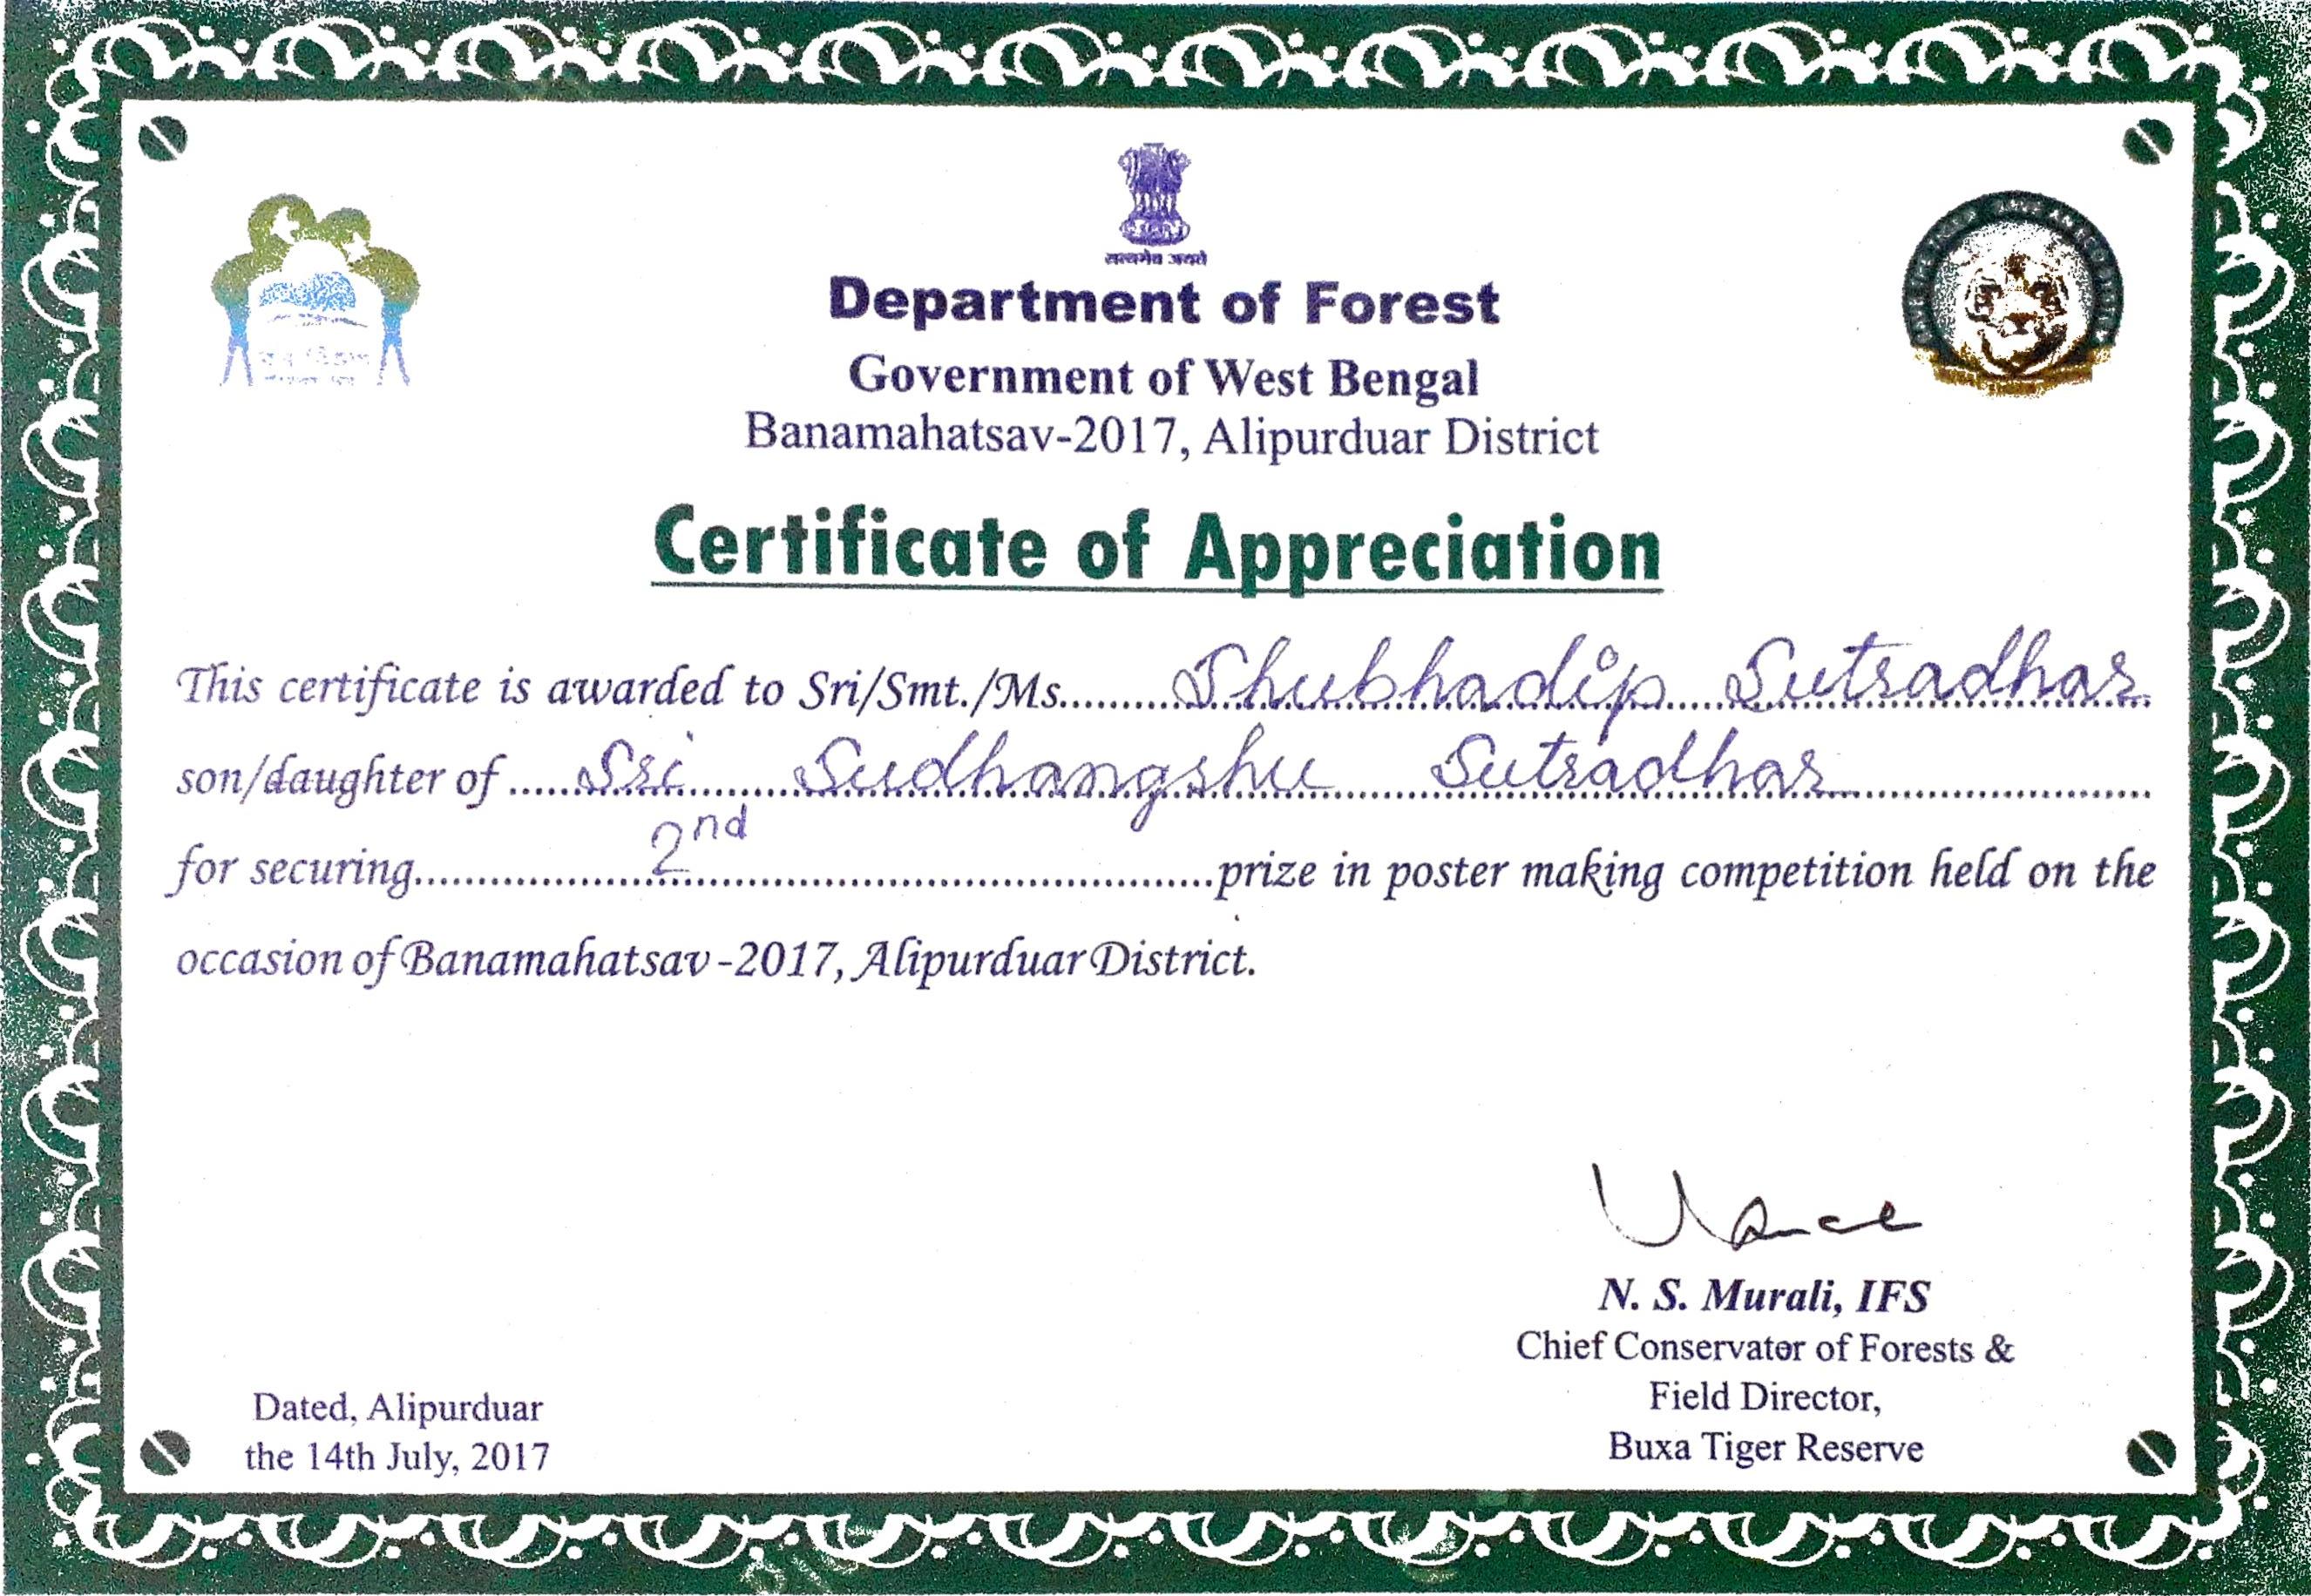 सत्यमेव जयते
Department of Forest
Government of West Bengal
Banamahatsav-2017, Alipurduar District
Certificate of Appreciation
This certificate is awarded to Sri/Smt./Ms..........Shubhadip Sutradhar
son/daughter of ......Sri Sudhangshu Sutradhar
for securing..........2nd..........prize in poster making competition held on the
occasion of Banamahatsav -2017, Alipurduar District.
N. S. Murali, IFS
Chief Conservator of Forests &
Field Director,
Buxa Tiger Reserve
Dated, Alipurduar
the 14th July, 2017